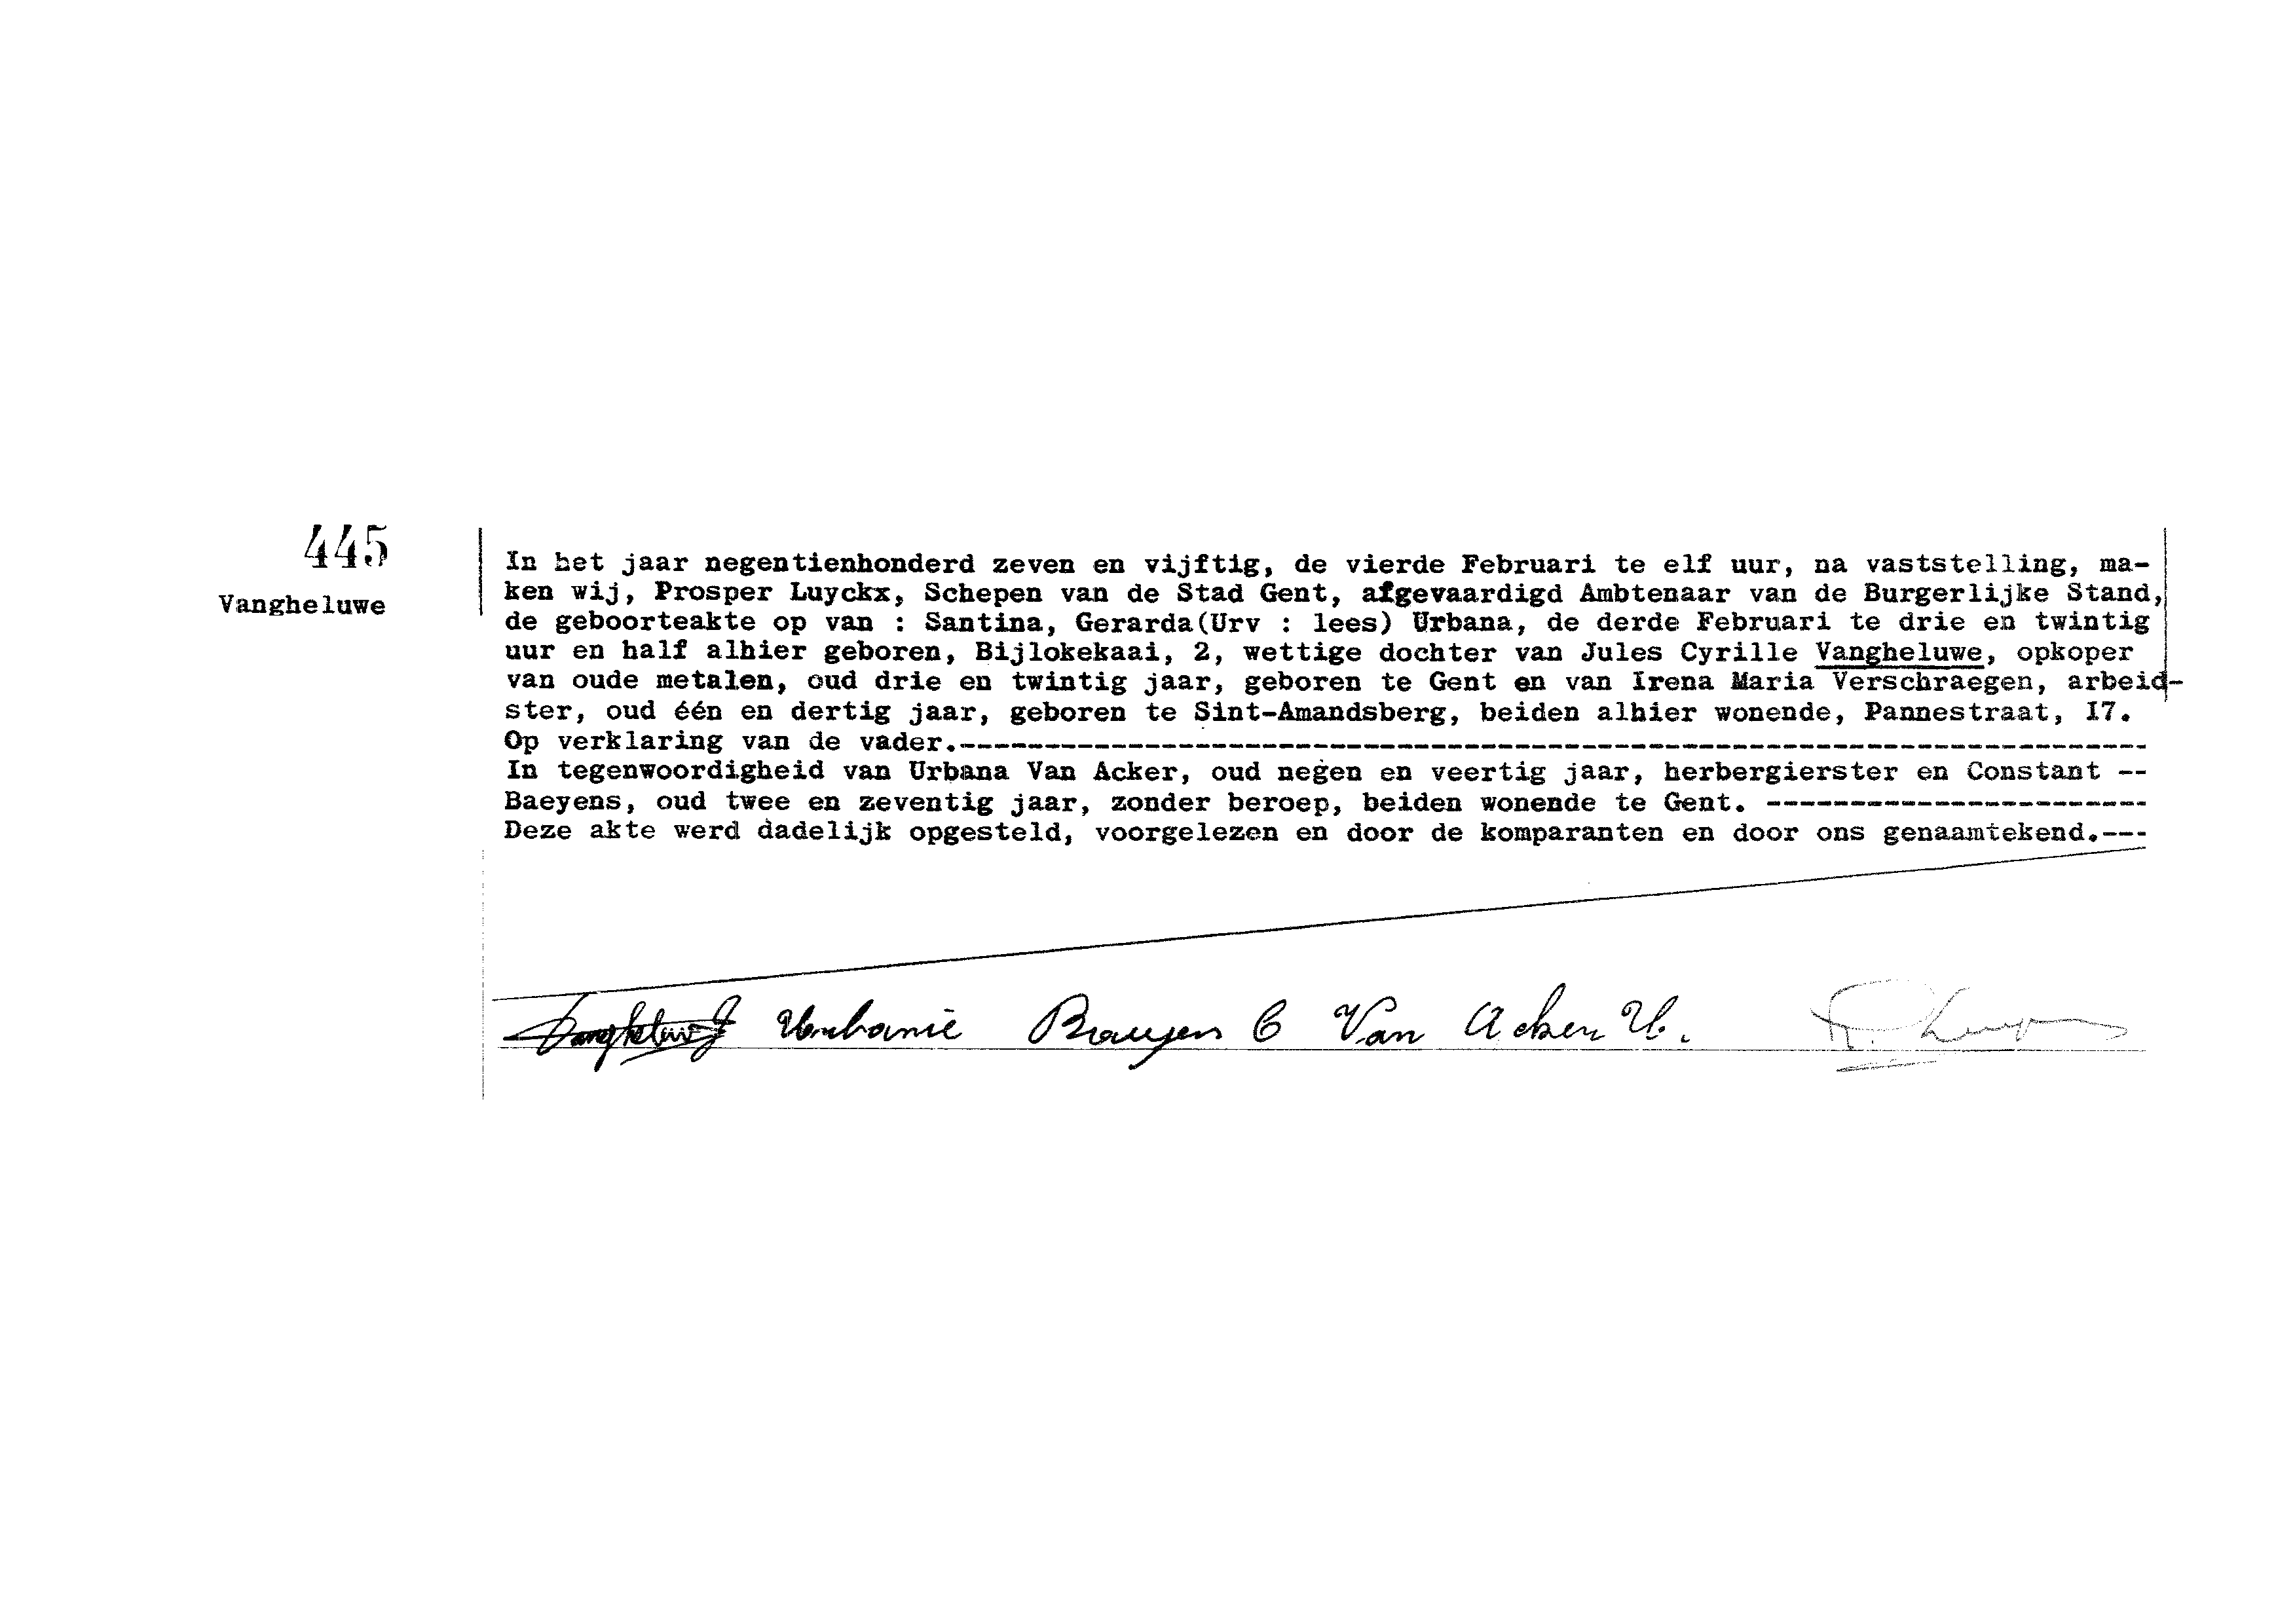 445
Vangheluwe
In het jaar negentienhonderd zeven en vijftig, de vierde Februari te elf uur, na vaststelling, ma-
ken wij, Prosper Luyckx, Schepen van de Stad Gent, afgevaardigd Ambtenaar van de Burgerlijke Stand,
de geboorteakte op van : Santina, Gerarda(Urv : lees) Urbana, de derde Februari te drie en twintig
uur en half alhier geboren, Bijlokekaai, 2, wettige dochter van Jules Cyrille Vangheluwe, opkoper
van oude metalen, oud drie en twintig jaar, geboren te Gent en van Irena Maria Verschraegen, arbeid-
ster, oud één en dertig jaar, geboren te Sint-Amandsberg, beiden alhier wonende, Pannestraat, I7.
Op verklaring van de vader.---
In tegenwoordigheid van Urbana Van Acker, oud negen en veertig jaar, herbergierster en Constant --
Baeyens, oud twee en zeventig jaar, zonder beroep, beiden wonende te Gent. ---
Deze akte werd dadelijk opgesteld, voorgelezen en door de komparanten en door ons genaamtekend.---
Van Acker U.